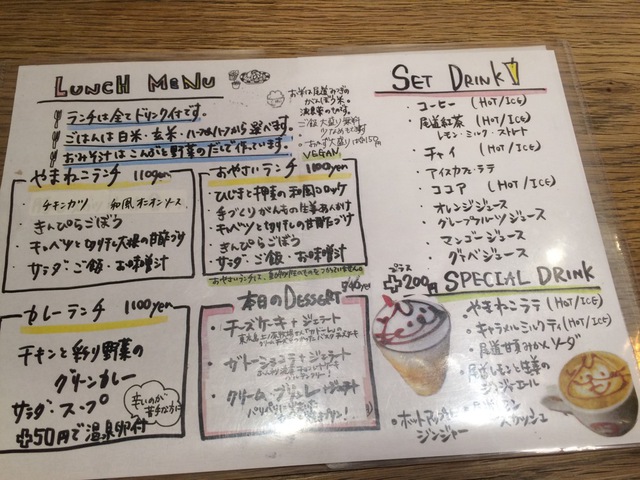 LUNCH MENU
ランチは全てドリンク付です。
ごはんは白米・玄米・ハーフ&ハーフから選べます。
おみそ汁はこんぶと野菜のだしで作っています。
ご飯 大盛り無料
やまねこランチ 1100yen
チキンカツ 和風オニオンソース
きんぴらごぼう
キャベツと切干大根の甘酢づけ
サラダ・ご飯・お味噌汁
VEGAN
おやさいランチ 1100yen
ひじきと押麦の和風コロッケ
手づくりがんもの生姜あんかけ
キャベツと切り干しの甘酢づけ
きんぴらごぼう
サラダ・ご飯・お味噌汁
カレーランチ 1100yen
チキンと彩り野菜の
グリーンカレー
サラダ・スープ
+50円で温泉卵付
辛いのが
苦手な方に
本日のDESSERT
チーズケーキ+ジェラート
ガトーショコラ+ジェラート
クリームブリュレ+ジェラート
SET DRINK
・コーヒー (HOT/ICE)
・尾道紅茶 (HOT/ICE)
レモン・ミルク・ストレート
・チャイ (HOT/ICE)
・アイスカフェ・ラテ
・ココア (HOT/ICE)
・オレンジジュース
・グレープフルーツジュース
・マンゴージュース
・グァバジュース
プラス
+200円
SPECIAL DRINK
・やまねこラテ (HOT/ICE)
・キャラメルミルクティ (HOT/ICE)
・尾道甘夏みかんソーダ
・尾道レモンと生姜の
ジンジャーエール
・ホットアップル
ジンジャー
スカッシュ